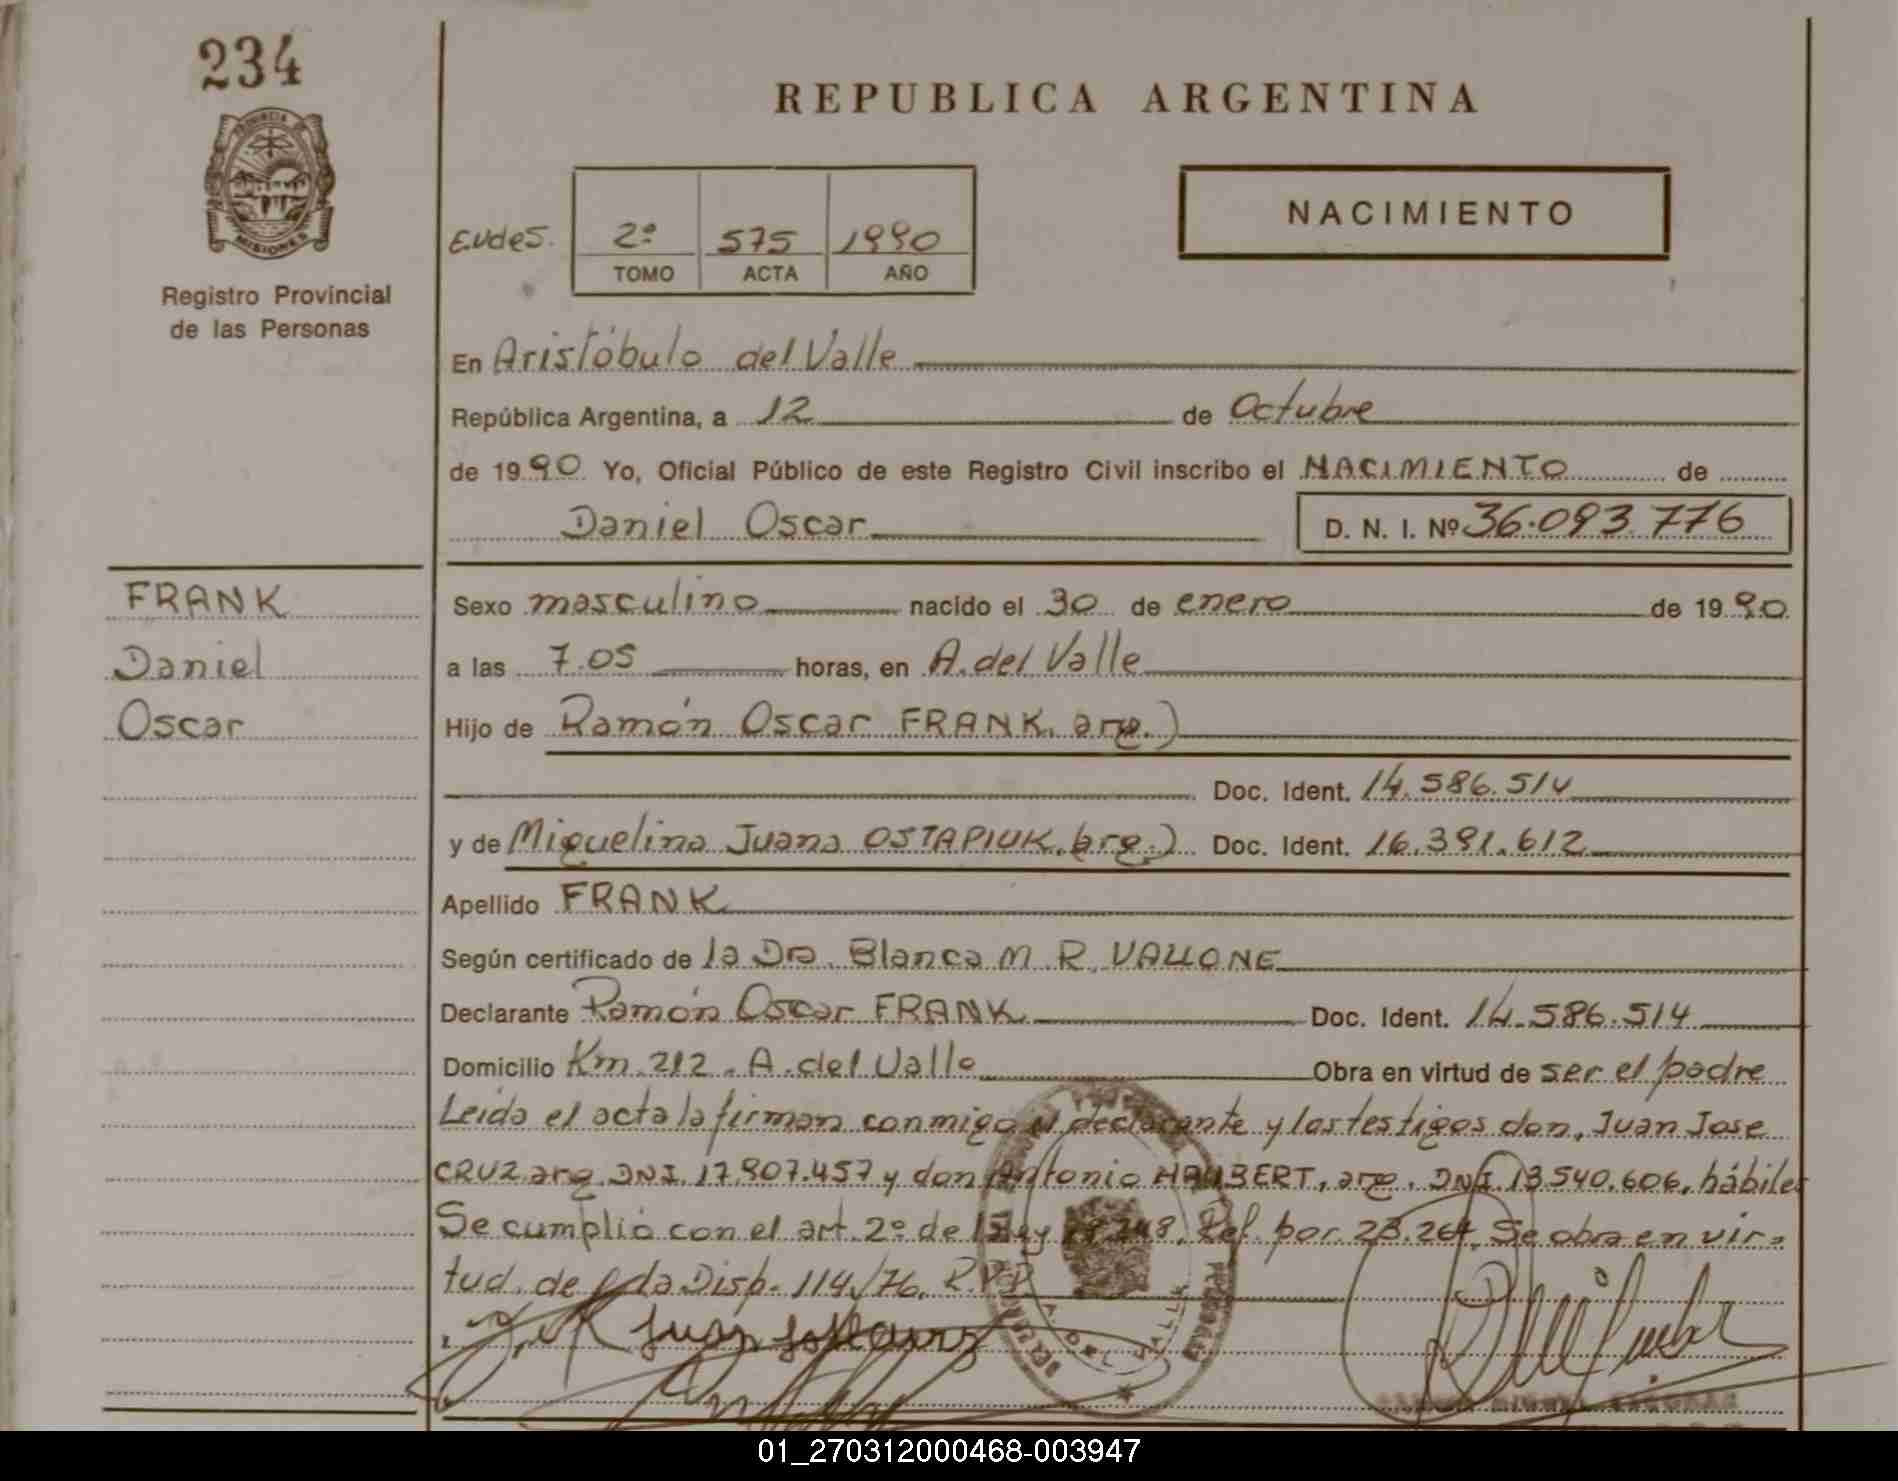 234
REPUBLICA ARGENTINA
PROVINCIA DE
MISIONES
Registro Provincial
de las Personas
NACIMIENTO
Eudes. 2º 575 1990
TOMO ACTA AÑO
En Aristóbulo del Valle
República Argentina, a 12 de Octubre
de 1990 Yo, Oficial Público de este Registro Civil inscribo el NACIMIENTO de
Daniel Oscar D. N. I. Nº 36.093.776
FRANK
Daniel
Oscar
Sexo masculino nacido el 30 de enero de 1990
a las 7.05 horas, en A. del Valle
Hijo de Ramón Oscar FRANK. arg.)
Doc. Ident. 14.586.514
y de Miguelina Juana OSTAPIUK.(arg.) Doc. Ident. 16.391.612
Apellido FRANK
Según certificado de la Dra. Blanca M. R. VALLONE
Declarante Ramón Oscar FRANK Doc. Ident. 14.586.514
Domicilio Km. 212. A. del Valle Obra en virtud de ser el padre
Leida el acta la firman conmigo el declarante y los testigos don, Juan Jose
CRUZ arg. DNI. 17.907.457 y don Antonio HAUBERT, arg. DNI. 13.540.606, hábiles
Se cumplió con el art. 2º de la Ley Ref. por 23.264. Se obra en vir-
tud. de la Disp. 114/76. R.P.P.
A. DEL VALLE
01_270312000468-003947